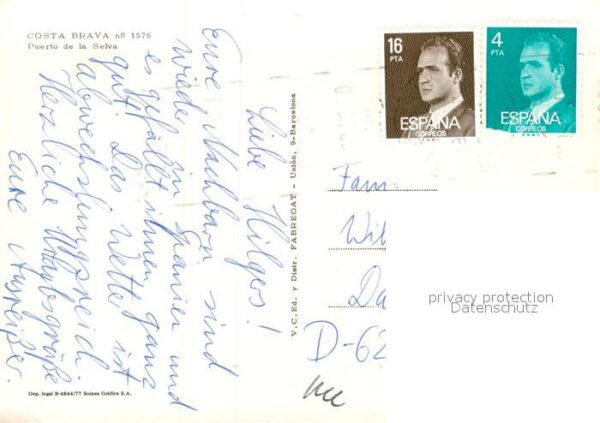 COSTA BRAVA nº 1576
Puerto de la Selva
Liebe Hilgers!
Eure Nachbarn sind
wieder in Spanien und
es gefällt ihnen ganz
gut. Das Wetter ist
abwechslungsreich.
Herzliche Urlaubsgrüße
Eure Ausreißer.
V.C. Ed. y Distr. FABREGAT - Unión, 9-Barcelona
Dep. legal B-4844/77 Soines Gráfica S.A.
16
PTA
ESPAÑA
CORREOS
4
PTA
ESPAÑA
CORREOS
Fam
Wil
Da
D-62
privacy protection
Datenschutz